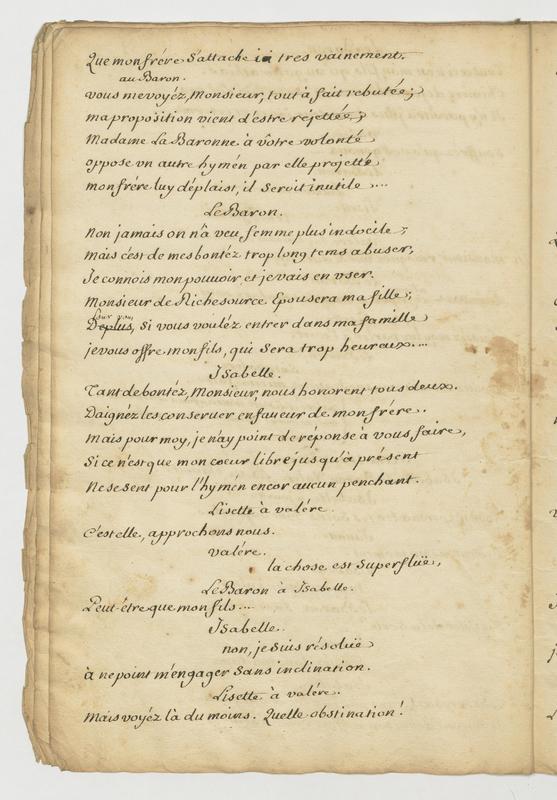 Que mon frére s'attache ici tres vainement.
au Baron.
vous me voyéz, Monsieur, tout à fait rebutée;
ma proposition vient d'estre réjettée;
Madame La Baronne à vôtre volonté
oppose vn autre hymén par elle projetté
mon frére luy déplaist, il seroit inutile ...
Le Baron.
Non jamais on n'a veu femme plus indocile;
mais c'est de mes bontéz trop long tems abuser,
Je connois mon pouvoir et je vais en vser.
Monsieur de Richesource Epousera ma fille;
Deplus, si vous vouléz entrer dans ma famille
je vous offre mon fils, qui sera trop heureux....
Isabelle.
Tant de bontéz, Monsieur, nous honorent tous deux.
Daignéz les conseruer en faueur de mon frére.
Mais pour moy, je n'ay point de réponse à vous faire,
Si ce n'est que mon coeur libre jusqu'à présent
Ne se sent pour l'hymén encor aucun penchant.
Lisette à valére.
C'est elle, approchons nous.
valére.
la chose est superfluë,
Le Baron à Isabelle.
Peut-être que mon fils....
Isabelle.
non, je suis résoluë
à ne point m'engager sans inclination.
Lisette à valére.
Mais voyéz là du moins. Quelle obstination!